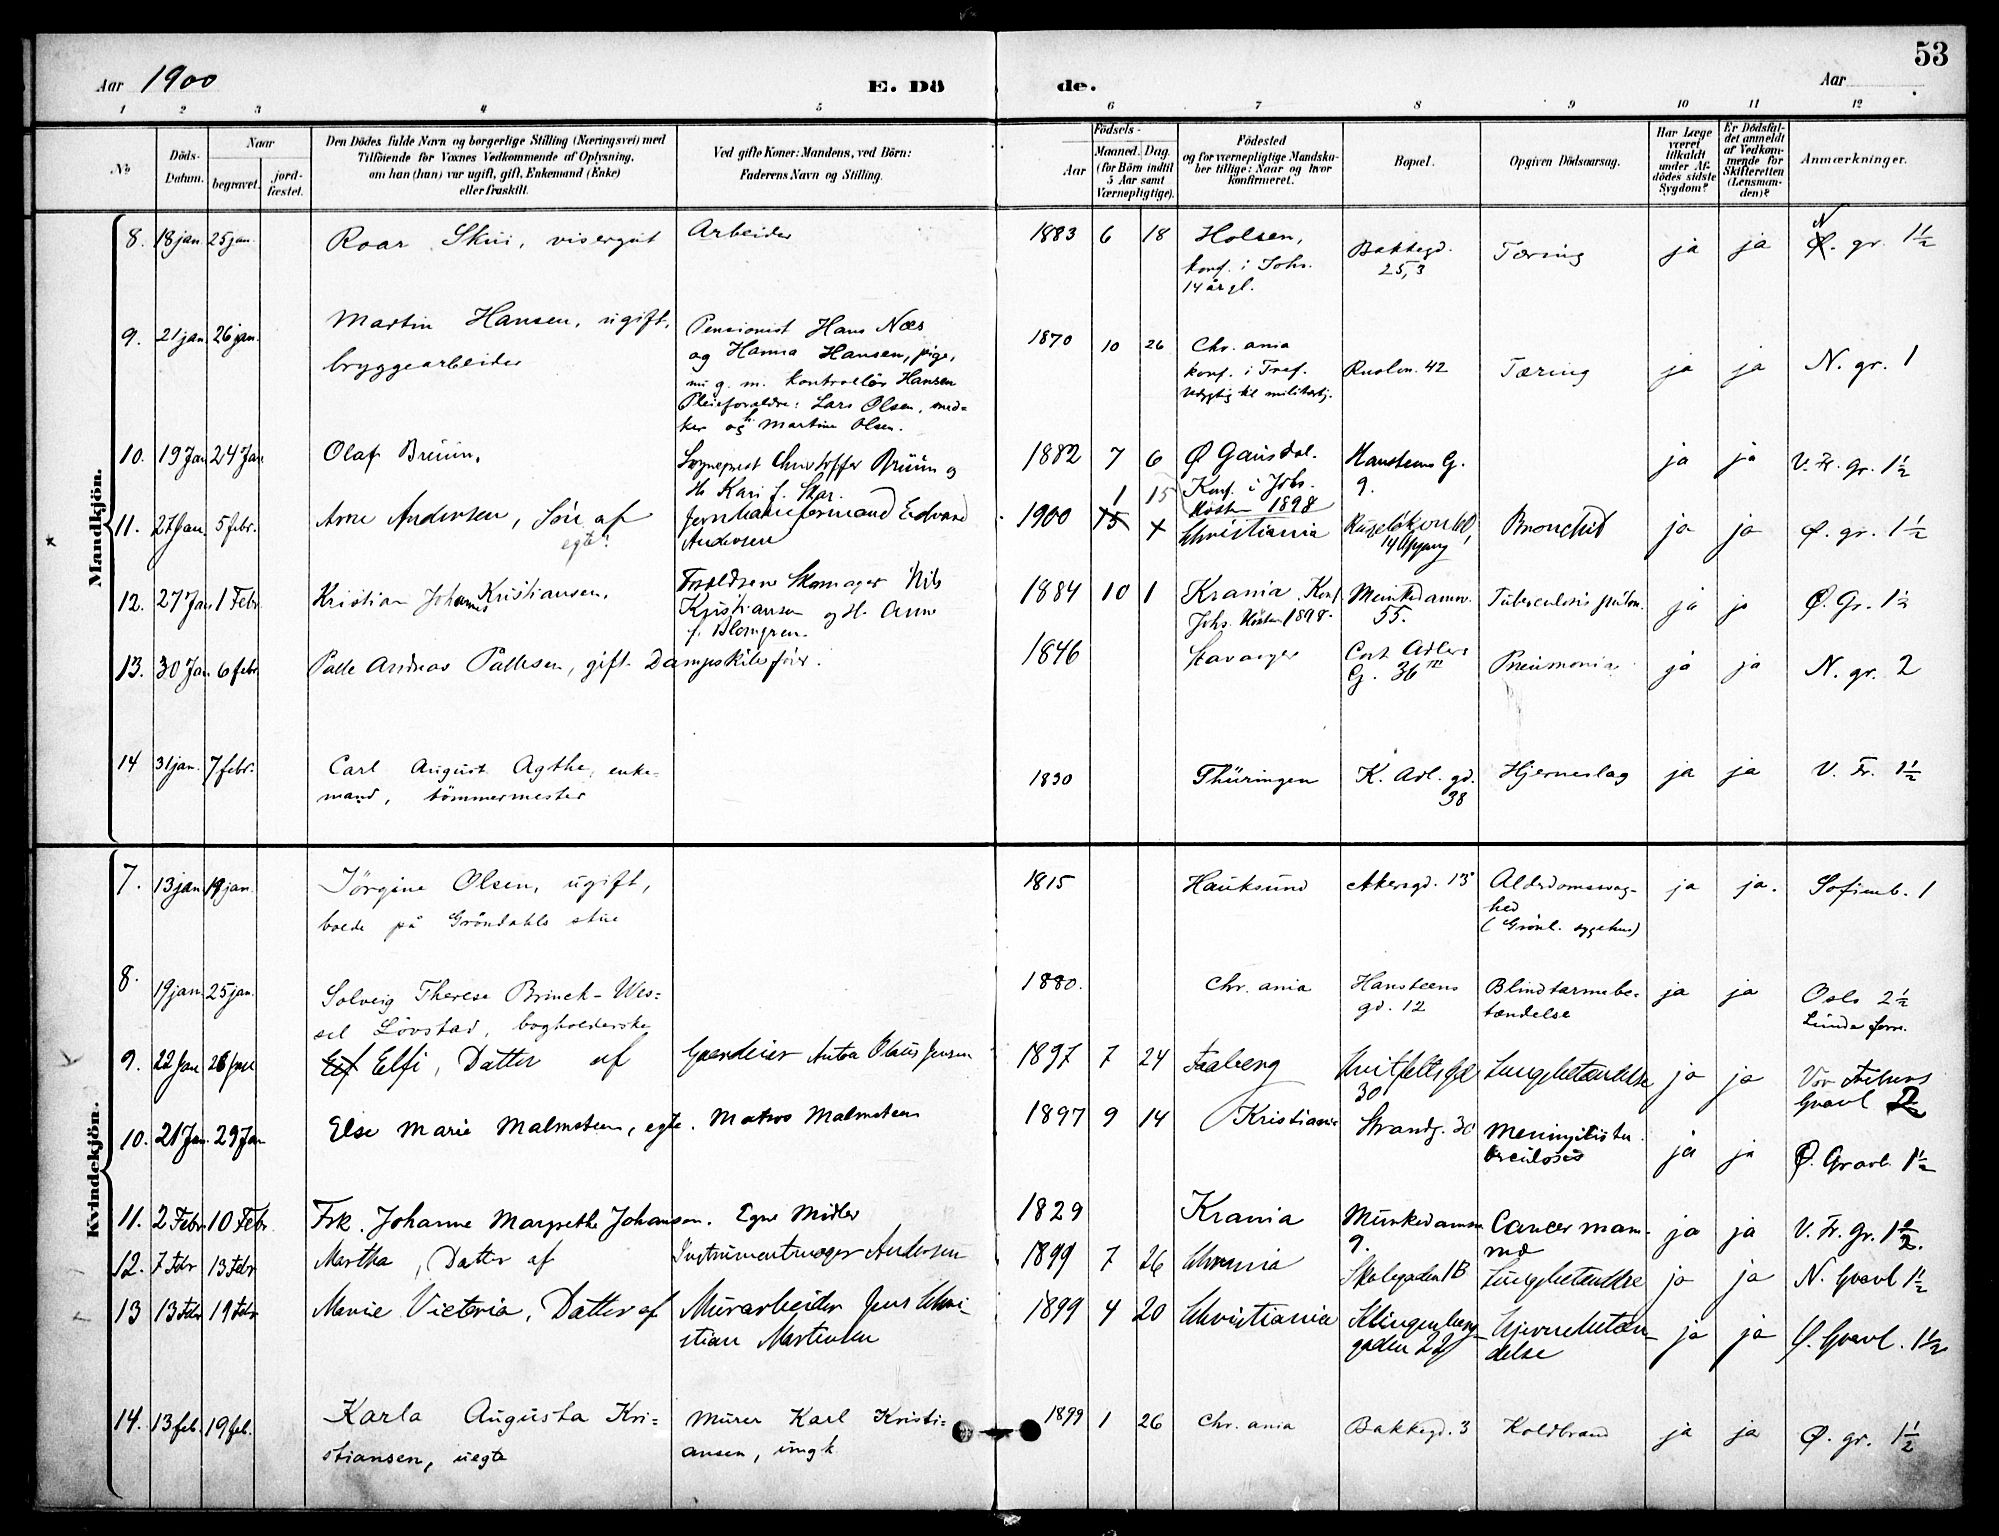 53
Aar 1900
E. Dö
de.
Aar
1 2 3 4 5
6 7 8 9 10 11 12
No
Döds-Datum.
Naar
begravet.
jordfæstet.
Den Dödes fulde Navn og borgerlige Stilling (Næringsvei) med
Tilföiende for Voxnes Vedkommende af Oplysning,
om han (hun) var ugift, gift, Enkemand (Enke)
eller fraskilt.
Ved gifte Koner: Mandens, ved Börn:
Faderens Navn og Stilling.
Födsels-
Aar
Maaned. Dag.
(for Börn indtil
5 Aar samt
Værnepligtige).
Födested
og for værnepligtige Mandska-
ber tillige: Naar og hvor
konfirmeret.
Bopæl.
Opgiven Dödsaarsag.
Har Læge
været
tilkaldt
under Af-
dödes sidste
Sygdom?
Er Dödsfal-
det anmeldt
af Vedkom-
mende for
Skifteretten
(Lensman-
den)?
Anmærkninger.
Mandkjön.
8. 18 jan 25 jan. Roar Skui, visergut Arbeider 1883 6 18 Holsen, Bakkegd. Tæring ja ja N. gr. 1½
konf. i Johs. 25,3
14 år gl.
9. 21 jan. 26 jan. Martin Hansen, ugift, Pensionist Hans Næs 1870 10 26 Chr. ania Ruslen. 42 Tæring ja ja N. gr. 1
bryggearbeider og Hanna Hansen, pige, konf. i Tref.
nu g. m. kontrollör Hansen
Pleieforældre: Lars Olsen, sned-
ker og h. Martine Olsen.
10. 19 Jan 24 Jan Olaf Bruun. Sogneprest Christoffer Bruun og 1882 7 6 Ø Gausdal. Hansteens G. ja ja V. Fr. gr. 1½
H. Kari f. Skar. Konf. i Johs. 9.
Hösten 1898
11. 27 Jan 5 febr. Arne Andersen, Sön af Edvard 1900 1 15 Christiania Bronchit ja ja Ø. gr. 1½
egte? Andersen 14 Opgang
12. 27 Jan 1 Febr Kristian Johannes Kristiansen. Forældrene Skomager Nils 1884 10 1 Krania. Konf Munkedamsv. Tuberculosis pulm. ja ja Ø. Gr. 1½
Kristiansen og H. Anna Johs. Hösten 1898. 55.
f. Blomgren.
13. 30 Jan 6 febr. Palle Andreas Pallesen, gift Dampskibsförer. 1846 Stavanger Cort Adlers Pneumonia ja ja N. gr. 2
G. 36 III
14 31 jan. 7 febr. Carl August Agthe, enke- 1830 Thüringen K. Adl. gd. Hjerneslag ja ja V. Fr. 1½
mand, tömmermester 38
Kvindekjön.
7. 13 jan 19 jan. Jörgine Olsen, ugift, 1815 Hauksund Akersgd. 13 Alderdomssvag- ja ja. Sofienb. 1
boede på Gröndahls stue hed
(Grönl. sygehus)
8. 19 jan. 25 jan. Solveig Therese Brinch-Wes- 1880. Chr. ania Hansteens Blindtarmsbe- ja ja Oslo 2½
sel Lövstad, bogholderske gd. 12 tændelse
9. 22 Jan 26 Jan Elfi, Datter af Anton Olaus Jensen 1897 7 24 Faaberg Huitfeltsgd Lungebetændelse ja ja Vor Frelsers
30 Gravl 2
10. 21 Jan. 29 Jan Else Marie Malmsteen, egte. Matros Malmsteen 1897 9 14 Kristiania Strandg. 30 Meningitis tu- ja ja Ø. Gravl. 1½
berculosis
11. 2 Febr 10 Febr. Frk. Johanne Margrethe Johansen. Egne Midler 1829 Krania Munkedamsv Cancer mam- ja ja V. Fr. Gr. 1½.
9. mæ
12. 7 Febr 13 Febr Martha, Datter af Instrumentmager Andersen 1899 7 26 Skolegaden 1B Lungebetændelse ja ja N. Gravl 1½
13 13 Febr 19 Febr Marie Victoria, Datter af Murarbeider Jens Chri- 1899 4 20 Christiania Klingenberg- Hjernebetæn- ja ja Ø. Gravl. 1½
stian Martinsen gaden 22 delse
14. 13 feb. 19 feb. Karla Augusta Kri- Murer Karl Kristi- 1899 1 26 Chr. ania Bakkegd. 3 Koldbrand ja ja Ø. gr. 1½
stiansen, uegte ansen, ungk